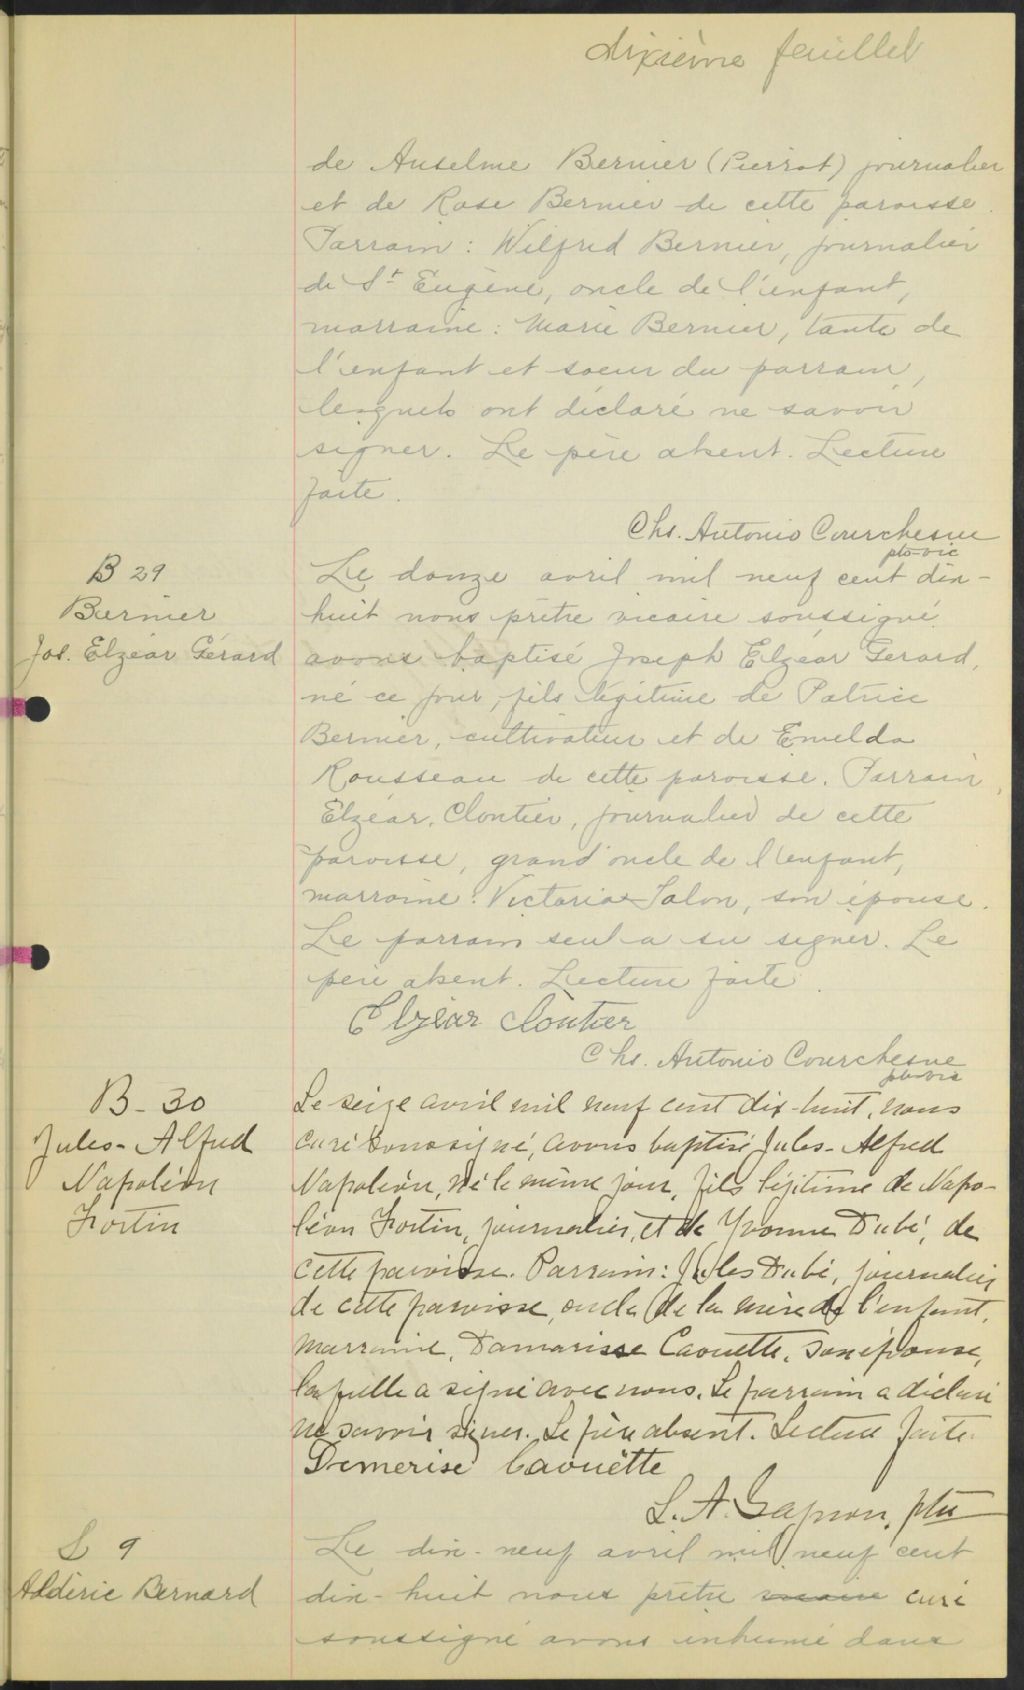 dixième feuillet
de Anselme Bernier (Pierrot) journalier
et de Rose Bernier de cette paroisse.
Parrain : Wilfrid Bernier, journalier
de St Eugène, oncle de l'enfant,
marraine : Marie Bernier, tante de
l'enfant et soeur du parrain,
lesquels ont déclaré ne savoir
signer. Le père absent. Lecture
faite.
Chs. Antonio Courchesne
ptre-vic
B 29
Bernier
Jos. Elzéar Gérard
Le douze avril mil neuf cent dix-
huit nous prêtre vicaire soussigné
avons baptisé Joseph Elzéar Gerard,
né ce jour, fils légitime de Patrice
Bernier, cultivateur et de Emelda
Rousseau de cette paroisse. Parrain,
Elzéar Cloutier, journalier de cette
paroisse, grand'oncle de l'enfant,
marraine : Victoria Talon, son épouse.
Le parrain seul a su signer. Le
père absent. Lecture faite.
Elzéar Cloutier
Chs. Antonio Courchesne
ptre-vic
B - 30
Jules - Alfred
Napoléon
Fortin
Le seize avril mil neuf cent dix-huit, nous
curé soussigné, avons baptisé Jules - Alfred
Napoléon, né le même jour, fils légitime de Napo-
léon Fortin, journalier, et de Yvonne Dubé, de
cette paroisse. Parrain : Jules Dubé, journalier
de cette paroisse, oncle de la mère de l'enfant,
marraine, Damarisse Caouette, son épouse,
laquelle a signé avec nous. Le parrain a déclaré
ne savoir signer. Le père absent. Lecture faite.
Demerise Caouëtte
L. A. Gagnon, ptre
S 9
Aldéric Bernard
Le dix-neuf avril mil neuf cent
dix-huit nous prêtre vicaire curé
soussigné avons inhumé dans